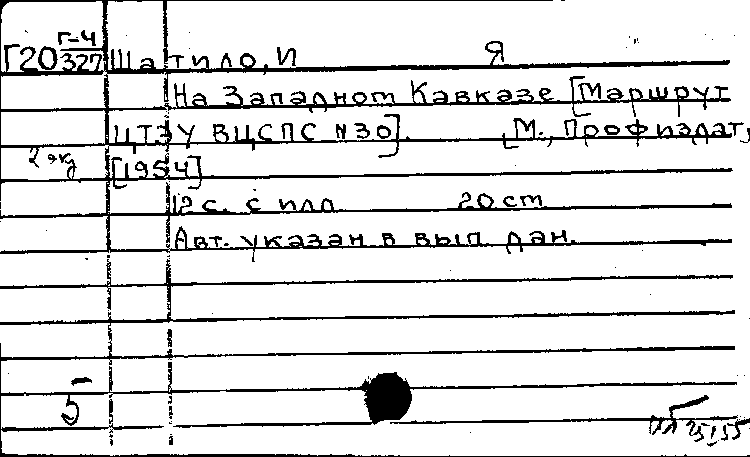 Г-4
Г20 327 Шатило, И Я
На Западном Кавказе [Маршрут
ЦТЭУ ВЦСПС №30]. [М., Профиздат,
2 экз
[1954]
12 с. с илл 20 cm
Авт. указан в вып. дан.
5
25 I 55